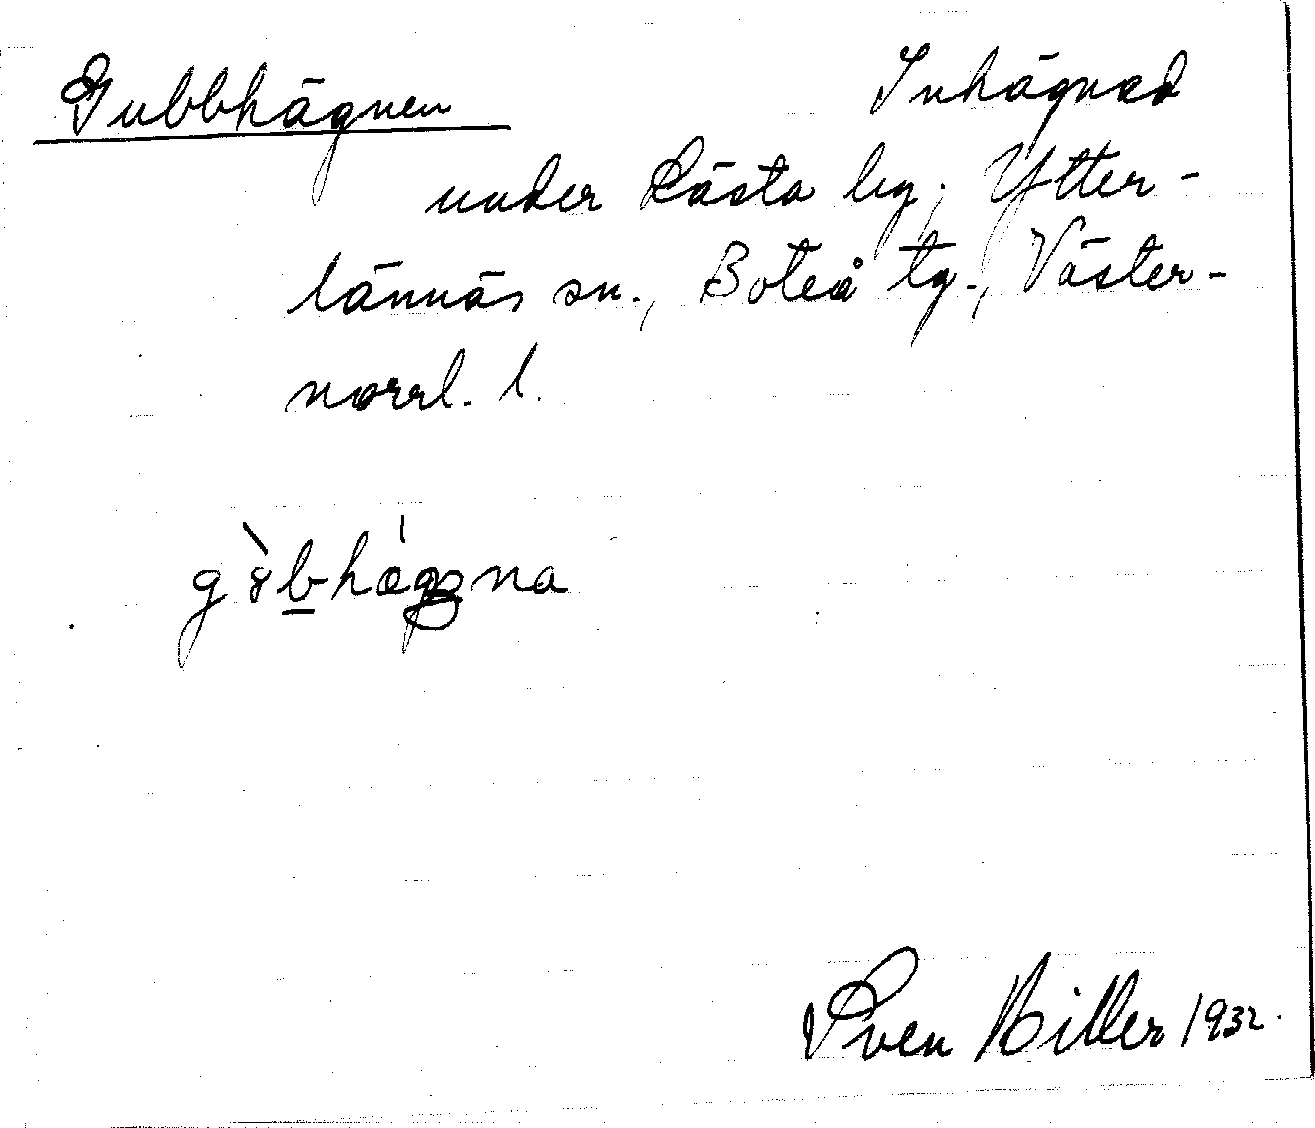 Gubbhägnen Inhägnad
under Lästa by, Ytter-
lännäs sn., Boteå tg., Väster-
norrl. l.
Sven Hiller 1932.